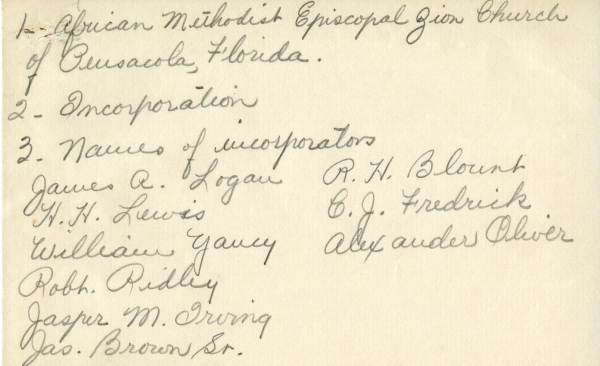 1- African Methodist Episcopal Zion Church
of Pensacola, Florida.
2- Incorporation
3. Names of incorporators
James A. Logan
H. H. Lewis
William Yancy
Robt. Ridley
Jasper M. Irving
Jas. Brown Sr.
R. H. Blount
C. J. Fredrick
Alexander Oliver